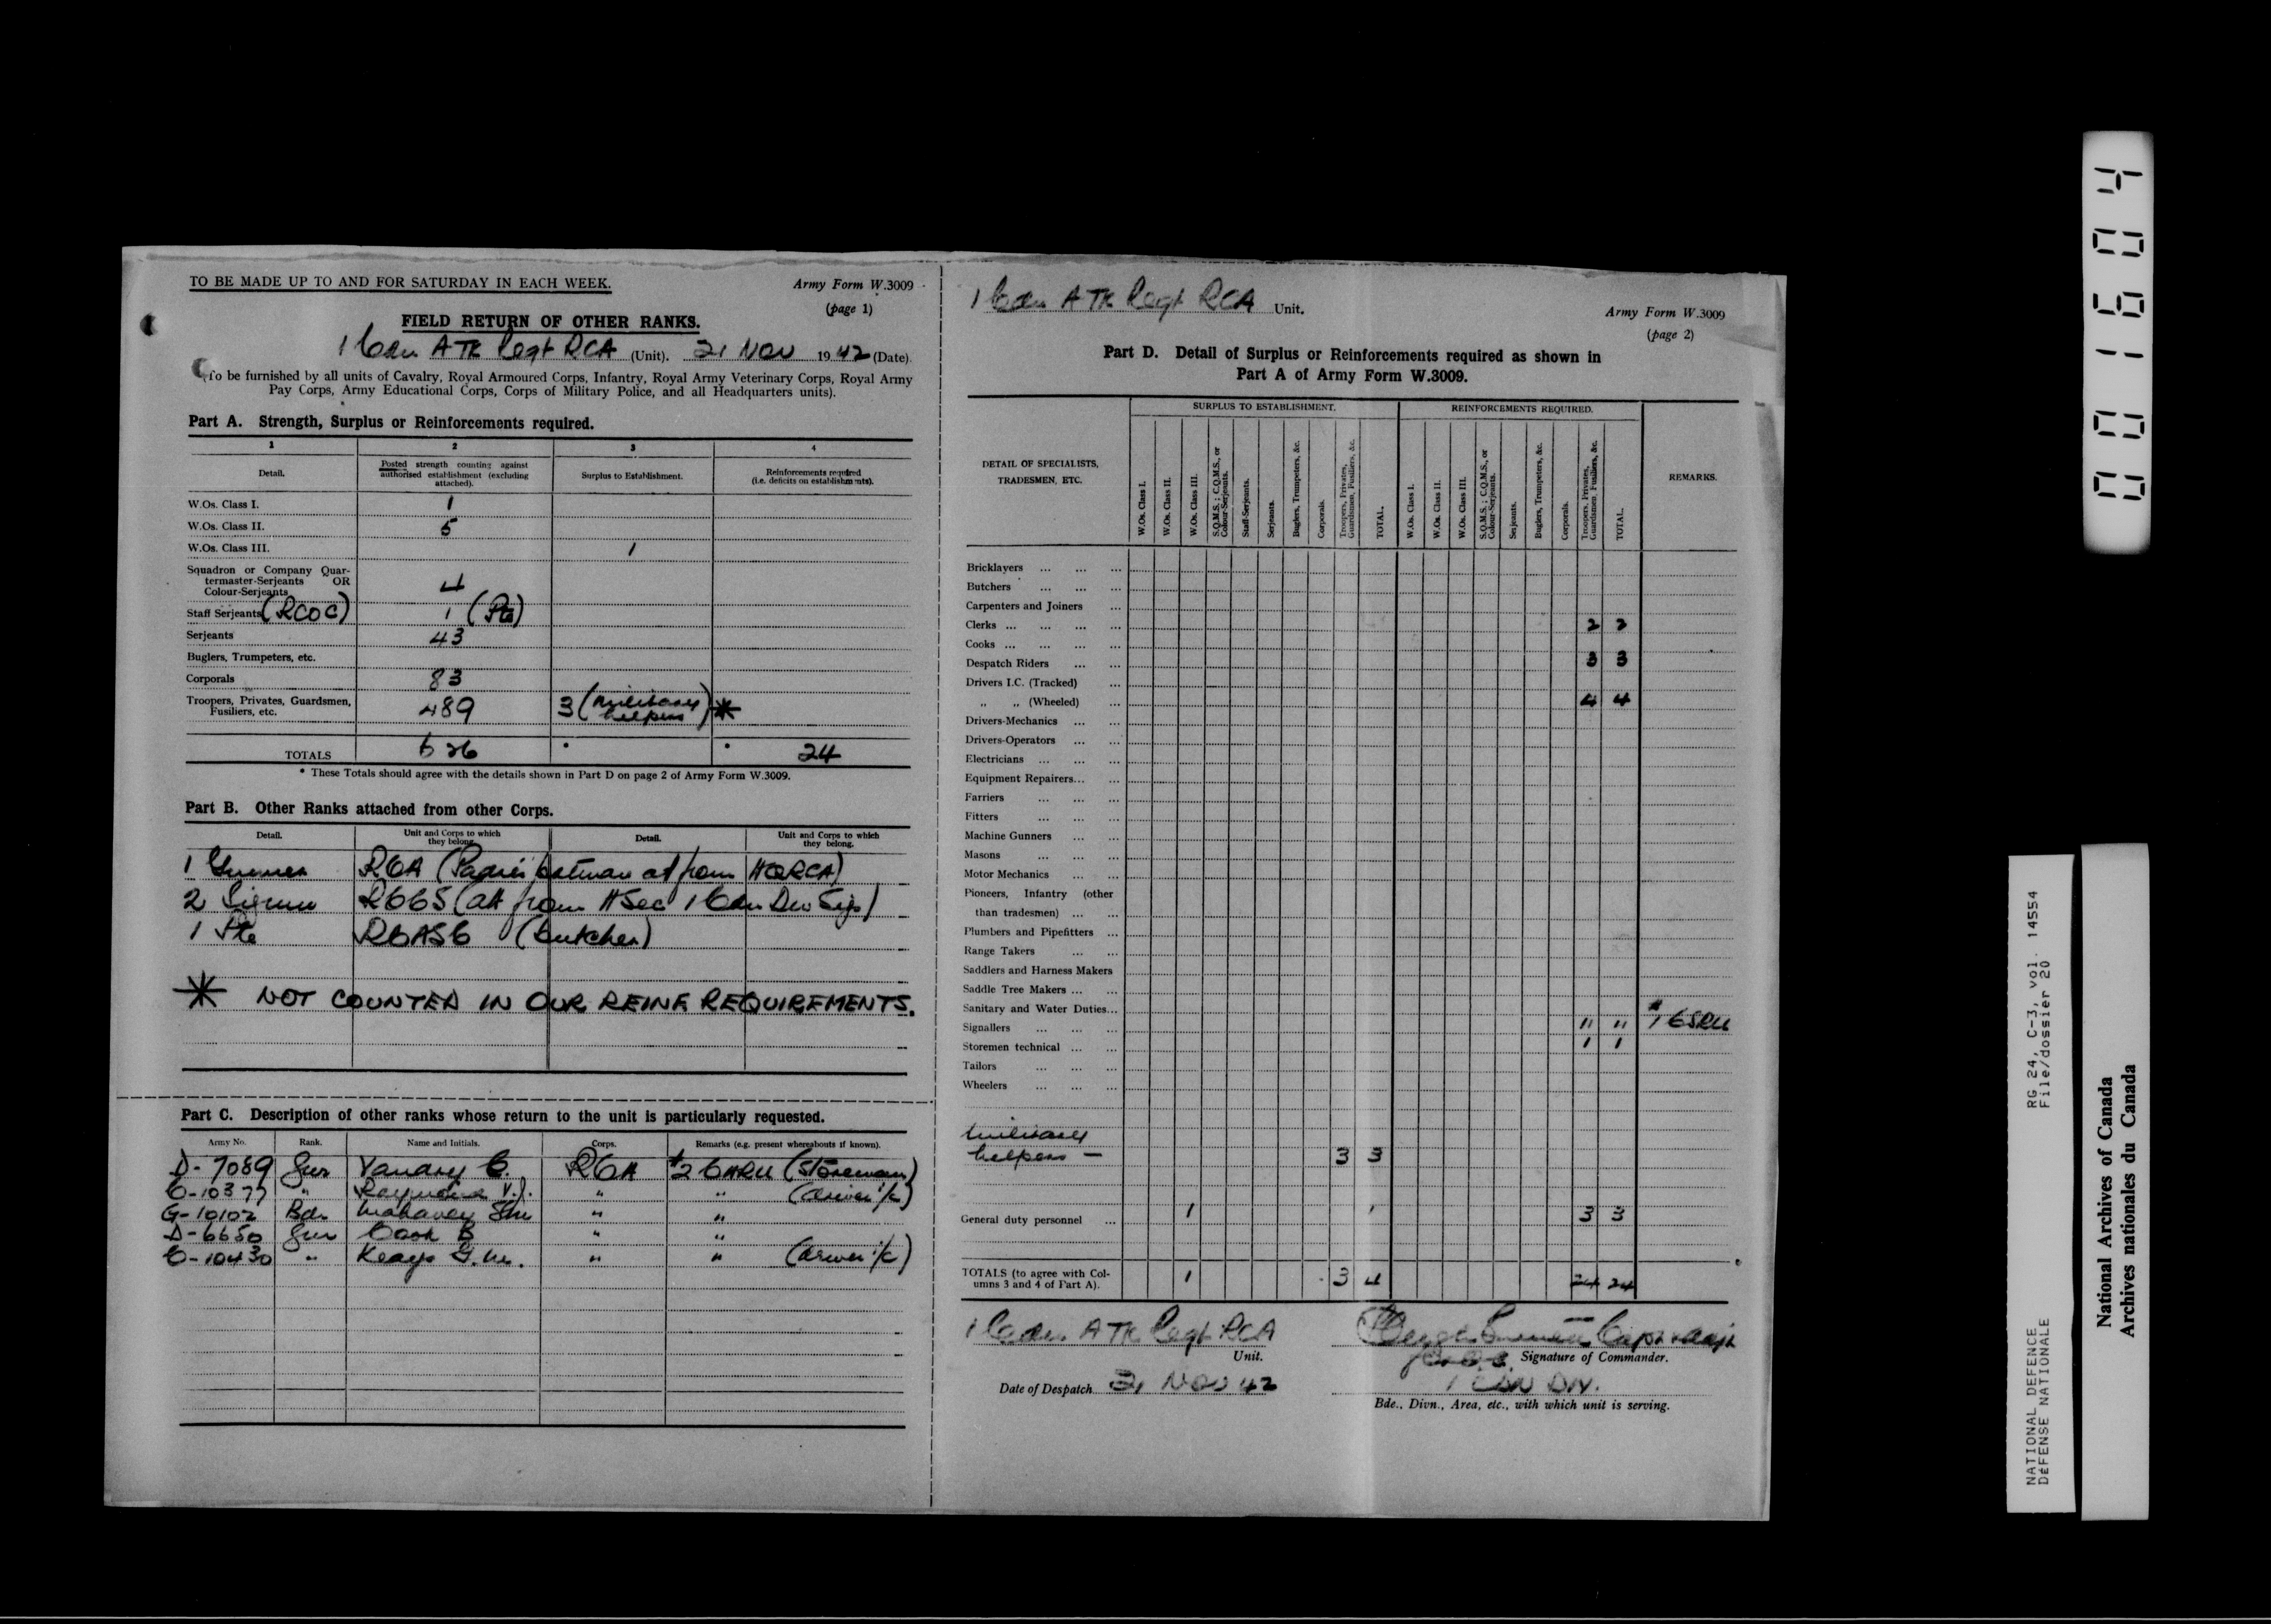 TO BE MADE UP TO AND FOR SATURDAY IN EACH WEEK.
Army Form W.3009
(page 1)
FIELD RETURN OF OTHER RANKS.
1 Cdn A Tk Regt RCA (Unit). 21 Nov 1942 (Date).
(To be furnished by all units of Cavalry, Royal Armoured Corps, Infantry, Royal Army Veterinary Corps, Royal Army
Pay Corps, Army Educational Corps, Corps of Military Police, and all Headquarters units).
Part A. Strength, Surplus or Reinforcements required.
1 2 3 4
Detail. Posted strength counting against authorised establishment (excluding attached). Surplus to Establishment. Reinforcements required (i.e. deficits on establishments).
W.Os. Class I. 1
W.Os. Class II. 5
W.Os. Class III. 1
Squadron or Company Quar-
termaster-Serjeants OR
Colour-Serjeants 4
Staff Serjeants (RCOC) 1 (Pte)
Serjeants 43
Buglers, Trumpeters, etc.
Corporals 83
Troopers, Privates, Guardsmen,
Fusiliers, etc. 489 3 (military helpers) *
TOTALS 626 * * 24
* These Totals should agree with the details shown in Part D on page 2 of Army Form W.3009.
Part B. Other Ranks attached from other Corps.
Detail. Unit and Corps to which they belong. Detail. Unit and Corps to which they belong.
1 Gunner RCA (Padre's batman att from HQRCA)
2 Sigmn RCCS (att from H Sec 1 Cdn Div Sigs)
1 Pte RCASC (butcher)
* NOT COUNTED IN OUR REINF REQUIREMENTS.
Part C. Description of other ranks whose return to the unit is particularly requested.
Army No. Rank. Name and Initials. Corps. Remarks (e.g. present whereabouts if known).
D-7089 Gnr C. RCA #2 CARU (Storeman)
C-10377 " Raymond V.J. " " (driver i/c)
G-10102 Bdr " "
D-6650 Gnr Cook B " "
C-10430 " Keays G.M. " " (driver i/c)
1 Cdn A Tk Regt RCA Unit.
Army Form W.3009
(page 2)
Part D. Detail of Surplus or Reinforcements required as shown in
Part A of Army Form W.3009.
DETAIL OF SPECIALISTS, TRADESMEN, ETC.
SURPLUS TO ESTABLISHMENT.
REINFORCEMENTS REQUIRED.
REMARKS.
W.Os. Class I.
W.Os. Class II.
W.Os. Class III.
S.Q.M.S.; C.Q.M.S., or Colour-Serjeants.
Staff-Serjeants.
Serjeants.
Buglers, Trumpeters, &c.
Corporals.
Troopers, Privates, Guardsmen, Fusiliers, &c.
TOTAL.
W.Os. Class I.
W.Os. Class II.
W.Os. Class III.
S.Q.M.S.; C.Q.M.S., or Colour-Serjeants.
Serjeants.
Buglers, Trumpeters, &c.
Corporals.
Troopers, Privates, Guardsmen, Fusiliers, &c.
TOTAL.
Bricklayers ... ... ...
Butchers ... ... ...
Carpenters and Joiners ...
Clerks ... ... ... ... 2 2
Cooks ... ... ... ...
Despatch Riders ... ... 3 3
Drivers I.C. (Tracked) ...
" " (Wheeled) ... 4 4
Drivers-Mechanics ... ...
Drivers-Operators ... ...
Electricians ... ... ...
Equipment Repairers... ...
Farriers ... ... ...
Fitters ... ... ...
Machine Gunners ... ...
Masons ... ... ...
Motor Mechanics ... ...
Pioneers, Infantry (other
than tradesmen) ... ...
Plumbers and Pipefitters ...
Range Takers ... ...
Saddlers and Harness Makers
Saddle Tree Makers ... ...
Sanitary and Water Duties...
Signallers ... ... ... 11 11 #1 CSRU
Storemen technical ... ... 1 1
Tailors ... ... ...
Wheelers ... ... ...
military
helpers — 3 3
General duty personnel ... 1 1 3 3
TOTALS (to agree with Col-
umns 3 and 4 of Part A). 1 3 4 24 24
1 Cdn A Tk Regt RCA
Unit.
Signature of Commander.
Date of Despatch 21 Nov 42
1 CDN DIV.
Bde., Divn., Area, etc., with which unit is serving.
001604
NATIONAL DEFENCE RG 24, C-3, vol. 14554
DÉFENSE NATIONALE File/dossier 20
National Archives of Canada
Archives nationales du Canada